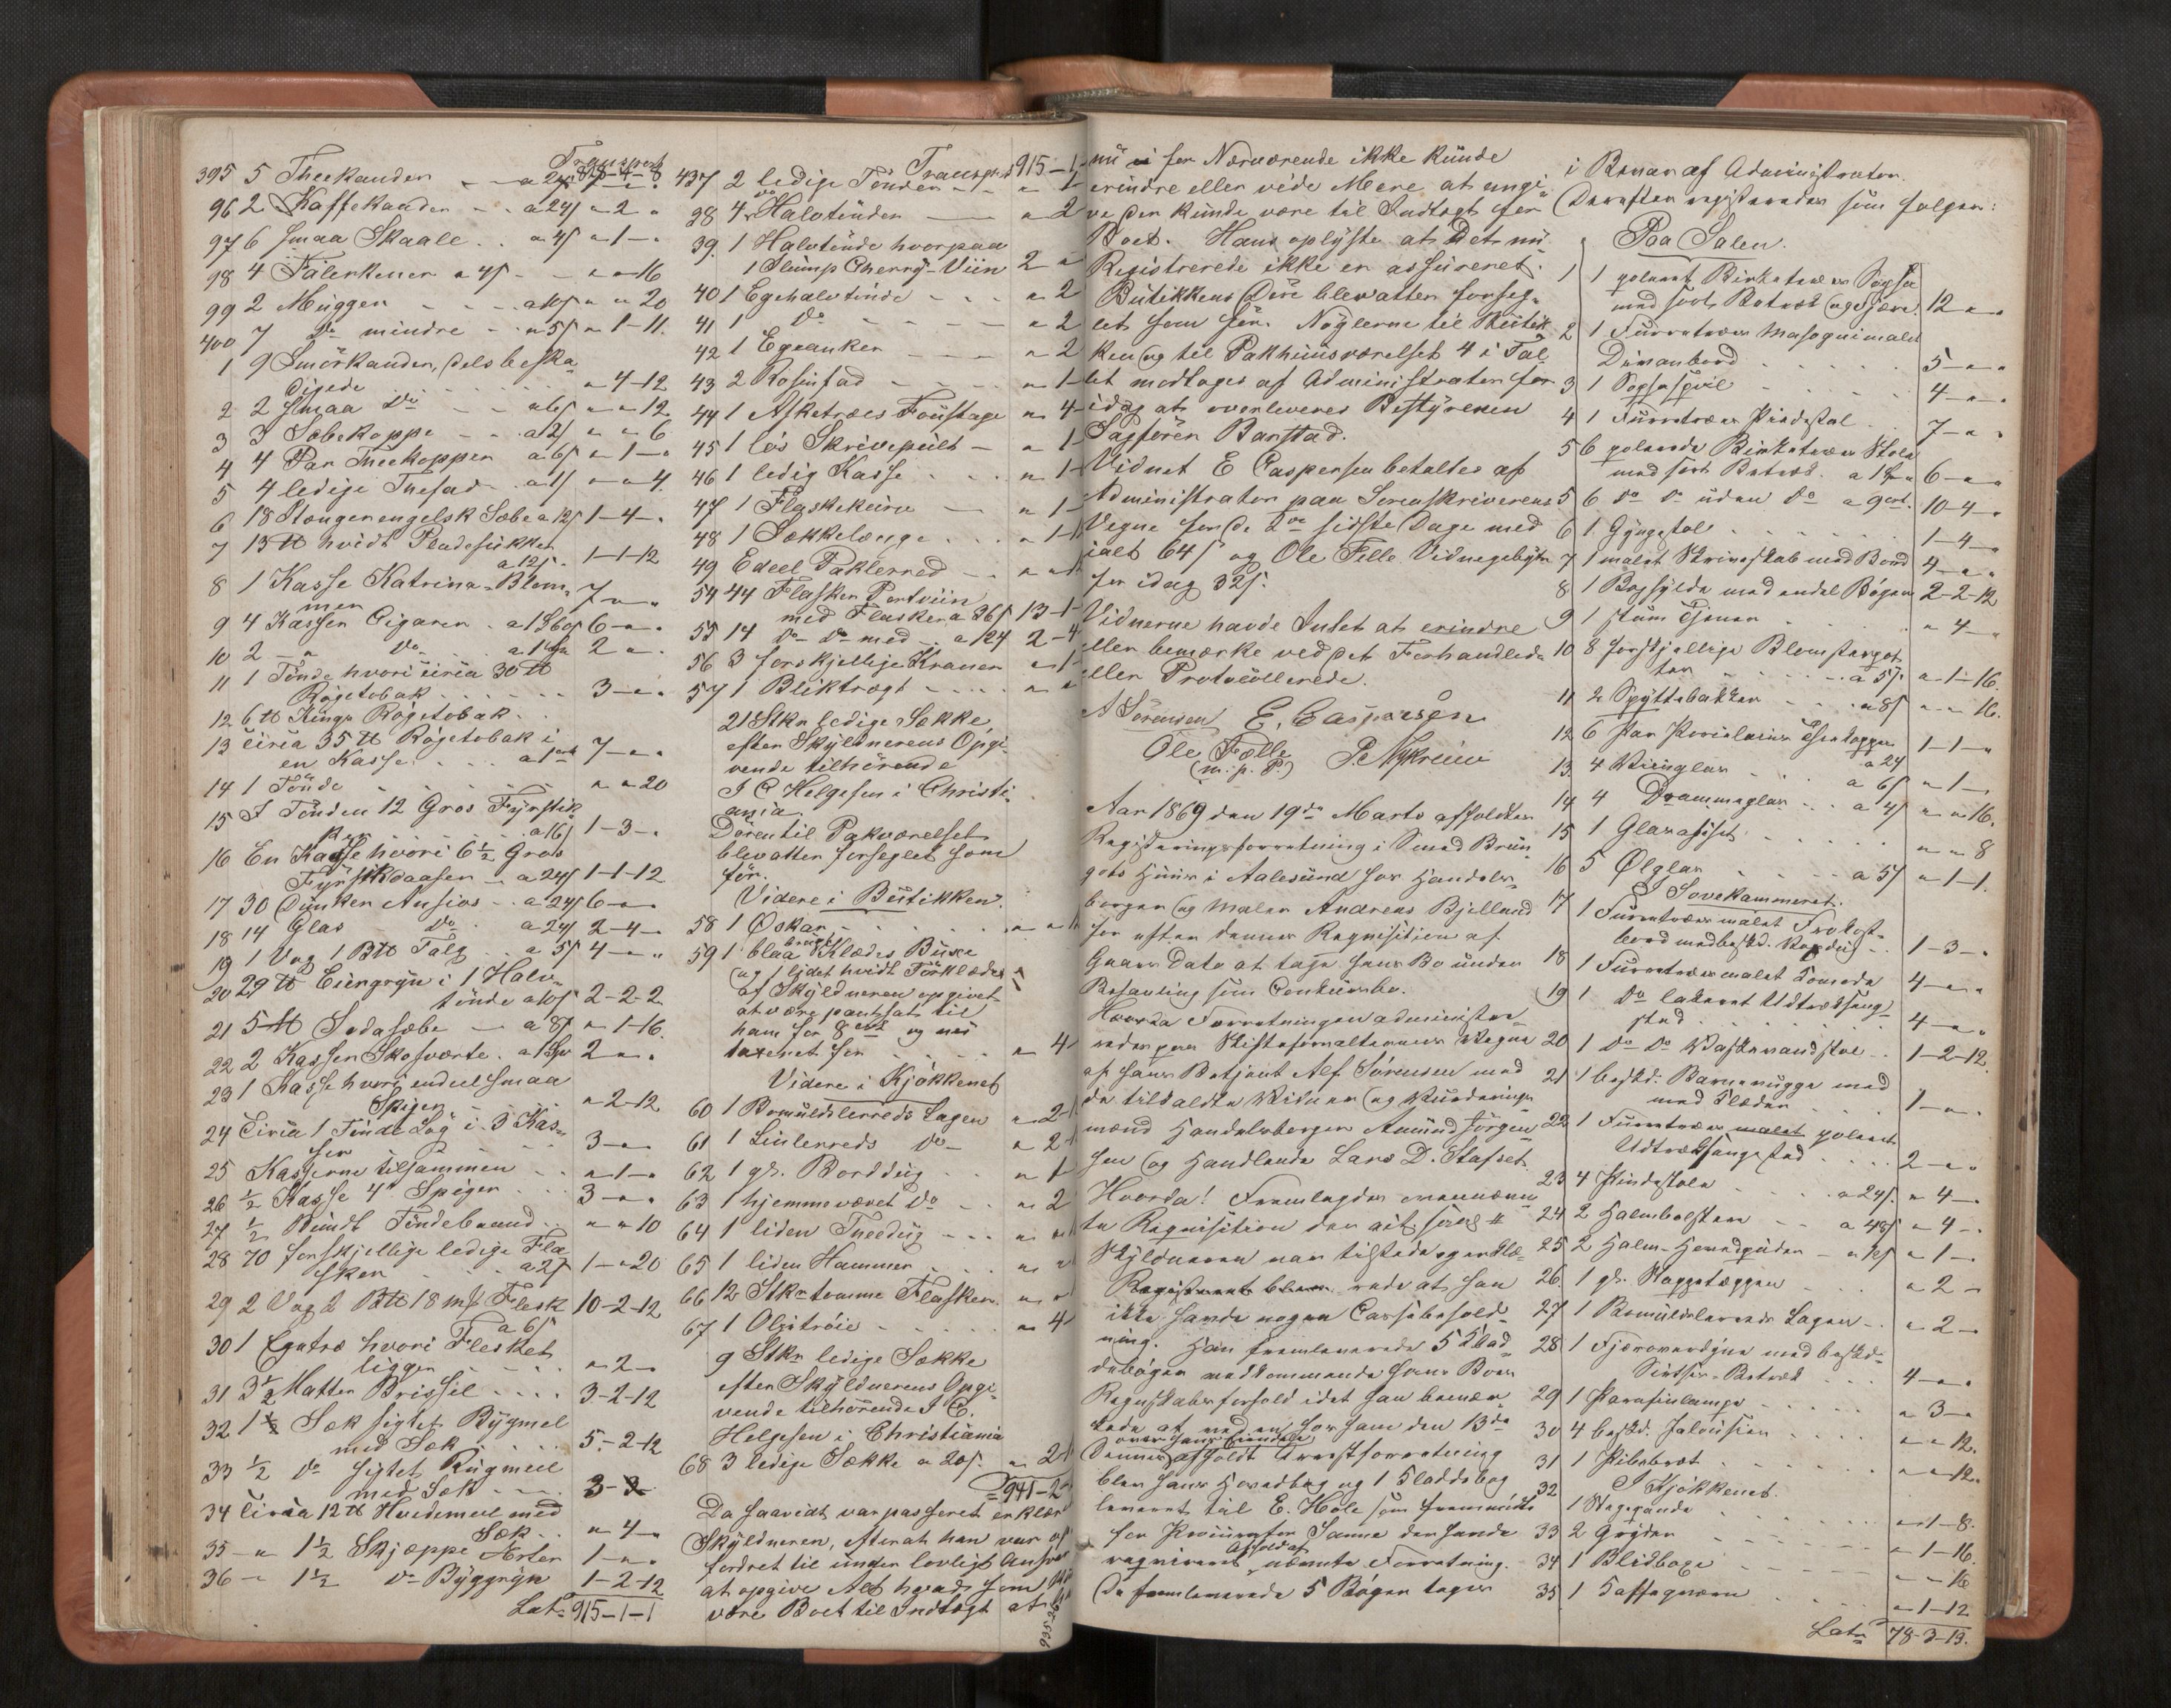 Transport 828-4-8
395 5 Theekander - - a 24s
96 2 Kaffekander - - a 24s " 2 "
97 6 smaa Skaale . . a 4s " 1 - "
98 4 Tälerkener a 4s - - " " 16
99 2 Muggen - - - a 10s " " 20
400 7 Do mindre - - a 5s " 1-11.
1 9 Smörkander, dels beska-
digede . . . . " 4-12
2 2 smaa Do - - a 6s " " 12
3 3 Sæbekoppe - - a 2s " " 6
4 4 Par Theekopper a 6s " 1 - "
5 4 ledige Theefad a 1s " " 4.
6 18 Stænger engelsk Sæbe a 12s 1-4- "
7 13 ℔ hvidt Pladesukker
a 12s - 1-1-12
8 1 Kasse Katrina-Blom-
mer 7 - " "
9 4 Kasser Cigarer . 6 - " "
10 2 - " Do . 2 " "
11 1 Tönde hvori circa 30 ℔
Rögetobak . . . . . 3 - " "
12 6 ℔ Rögetobak . .
13 circa 35 ℔ Rögetobak i
en Kasse . . . 7 - " "
14 1 Tönde . . . . " " 20
15 I Tönden 12 Gros Fyrstik-
ker . . . a 16s 1-3- "
16 En Kasse hvori 6½ Gros
Fyrstikdaaser - a 24s 1-1-12
17 30 Dunker Ansios - . a 24s 6 - " "
18 14 Glas Do . a 24s 2-4- "
19 1 Vog 1 B℔ Talg . . a 5s 4 - " "
20 29 ℔ Ciengryn i 1 Halv-
tönde a 10s 2-2-2
21 5 ℔ Sodasæbe - a 8s " 1-16.
22 2 Kasser Skosværte . 2 " "
23 1 Kasse hvori endeel smaa
Spiger - - " 2-12
24 Circa 1 Tönde Log i 3 Kas-
ser - - 3 - " "
25 Kasserne tilsammen - - " 1 - "
26 ½ Kasse 4" Spiger - - 3 - " "
27 ½ Bundt Töndebaand - " " 10
28 70 forskjellige ledige Fla-
sker . . a 2s 1 - " 20
29 2 Vog 2 B℔ 18 m℔ Flesk
a 6s 10-2-12
30 1 Egetræ hvori Flesket
ligger - - " 2 - "
31 3½ Matter Brissil . . . . 3-2-12
32 1 Sæk sigtet Bygmel
med Sæk . . . . 5-2-12
33 ½ Do sigtet Rugmeel
med Sæk - - 3-3
34 Circa 12 ℔ Hvedemeel med
Sæk - - " 4 - "
35 - " 1½ Skjæppe Ærter 1 - " "
36 - " 1½ Do Byggryn 1-2-12
Lats 915-1-1
Transport 915-1
437 2 ledige Tönder - - " 1
38 4 Do Halvtönder - " 2
39. 1 Halvtönde hvorpaa
1 Slump Cherry-Viin 2 - "
40 1 Egehalvtönde - - - " 2
41 1 Do - - - " 2
42 1 Egeanker - - - " 2
43 2 Rosinfad - - - " 1
44 1 Asketræes Foustage " 4
45 1 lös Skrivepult - " 1
46 1 ledig Kasse - - - " 1
47 1 Flaskekurv - - " 1
48 1 Sækkelænge . . . " 1
49 Edeel Paklerred - - " "
54 44 Flasker Portviin
med Flasker a 36s 13-1
55 14 Do Do med - a 24 2-4
56 3 forskjellige Kraner " 1
57 1 Bliktragt - - - - " "
21 Stkr ledige Sække
efter Skyldnerens Opgi-
vende tilhörende
J C Helgesen i Christi-
ania.
Dören til Pakværelset
blev atter forseglet som
för.
Videre i Butikken.
58 1 Öskar - - - " "
59 1 blaa brugt Klædes Buxe
og 1 lidet hvidt Törklæde
af Skyldneren opgivet
at være pantsat til
ham for 8 ort og nu
taxeret for - - - " 4
Videre i Kjökkenet
60 1 Bomuldslerreds Lagen " 2
61 1 Linlerreds Do - " 2
62 1 gl. Borddug - - " 1
63 1 hjemmevævet Do - - " 2
64 1 liden Theedug - - - " "
65 1 liden Hammer - - - " "
66 12 Stkr tomme Flasker. " "
67 1 Olgitröie - - - " 4
9 Stkr ledige Sække
efter Skyldnerens Opgi-
vende tilhörende J C.
Helgesen i Christiania
68 3 ledige Sække a 20s. " 2
941-2
Da saavidt var passeret erklær
Skyldneren, efterat han var op
fordret til under lovligt Ansvar
at opgive Alt hvad som
være Boet til Indtægt at
935-2
nu ei for Nærværende ikke kunde
erindre eller vide Mere at angi-
ve der kunde være til Indtægt for
Boet. Hans oplyste at Det nu
Registrerede ikke er assureret.
Butikkens Döre blev atter forseg-
let som för. Nöglerne til Butik-
ken og til Pakhuusværelset 4 i Tal
let modtoges af Administrator for
idag at overleveres Bestyreren
Sagförer Barstad.
Vidnet E Caspersen betaltes af
Administrator paa Sorenskriverens
Vegne for de 2de sidste Dage med
ialt 64s og Ole Fille Vidnegebyhr
for idag 32s.
Vidnerne havde Intet at erindre
eller bemærke ved det Forhandlede
eller Protocollerede.
A Sörensen E. Caspersen
Ole Fælle
(m. p. P.)
Aar 1869 den 19de Marts afholdtes
Registreringsforretning i Smed Brun-
gots Huus i Aalesund hos Handels-
borger og Maler Andreas Bjellund
for efter dennes Requisition af
Gaars Dato at tage hans Bo under
Behandling som Concursbo.
Hvorda Forretningen administre-
redes paa Skifteforvalterens Vegne
af hans Betjent Alf Sörensen med
de tilkaldte Vidner og Vurderings-
mænd Handelsborger Amund Jörgen-
sen og Handlende Lars D. Stafset
Hvorda! Fremlagdes ovennævn-
te Requisition der alt saa #
Skyldneren var tilstede og erklæ-
rede at han
ikke havde nogen Cassabehold-
ning. Han fremleverede 5 Klad-
deböger vedkommende hans Boes
Regnskabsforhold idet han bemær-
kede at ved en hos ham den 13de
over hans Eiendele
Dennes afholdt Arrestforretning
blev hans Hovedbog og 1 Kladdebog
leveret til E. Hole som fremmödte
for Procurator Sanne der havde
requireret Afhold af nævnte Forretning.
De fremleverede 5 Böger toges
i Bevar af Administrator.
Derefter registreredes som fölger:
Paa Salen.
1 1 poleret Birketræes Sopha
med sort Betræk og Fjære. 12 - " "
2 1 Furretræes Mahognimalet
Divanbord . . . . 5 - " "
3 1 Sophaspeil - - - 4 - " "
4 1 Furretræes Pindestol . . 7 - " "
5 6 polerede Birketræes Stole
med sort Betræk . 6 - " "
5 6 Do Do uden Do a 9 ort. 10-4- "
6 1 Gyngestol . . . . 1-4- "
7 1 malet Skriveskab med Bord 4 - " "
8 1 Boghylde med endel Böger 2-2-12
9 1 stum Tjener . . . . " 4 - "
10 8 forskjellige Blomsterpot-
ter . . . . a 5s. " 1-16.
11 2 Spyttebakker - - . a 8s " " 16.
12 6 Par Porcelains Theekopper
a 24 1-1- "
13. 4 Viinglas . . a 6s " 1 - "
14 4 Drammeglas - . . a 4s " " 16.
15 1 Glasassiet. . . . . " " 8
16 5 Ølglas . . . a 5s " 1-1.
I Sovekammeret.
17 1 Furretræes malet Frokost-
bord med beskd. 1-3- "
18 1 Furretræes malet Komode 4 - " "
19 1 Do lakeret Udtræksseng-
sted . . . . . 4 - " "
20 1 Do Do Vaskevandstol . . 1-2-12.
21 1 beskd: Barnevugge med
med Klæder . . . . 1 - " .
22 1 Furretræes malet poleret
Udtræksengested . . . . 2 - " "
23 4 Pindestole - - - a 24s. " 4 - "
24 2 Halmbolstere - - a 48s " 4 - "
25 2 Halm-Hovedpuder - " 1 - "
26 1 gl. Kappetæppen - - - " 2 -
27 1 Bomuldslerreds Lagen - . " 2 - "
28 1 Fjæroverdyne med beskd-
Sirtses-Betræk . . . 4 - " "
29 1 Parafinlampe . . . . . " 3 - "
30 4 beskd. Jalousier . . . . " " 12.
31 1 Pibebræt . . . . . " " 12.
I Kjökkenet.
32 1 Stegepande . . . . " 1-8.
33 2 Gryder . . . . . " 1-16.
34 1 Blikboxe . . . . " " 16
35 1 Kaffeqværn . . . . " 1-12
Lats 78-3-13.